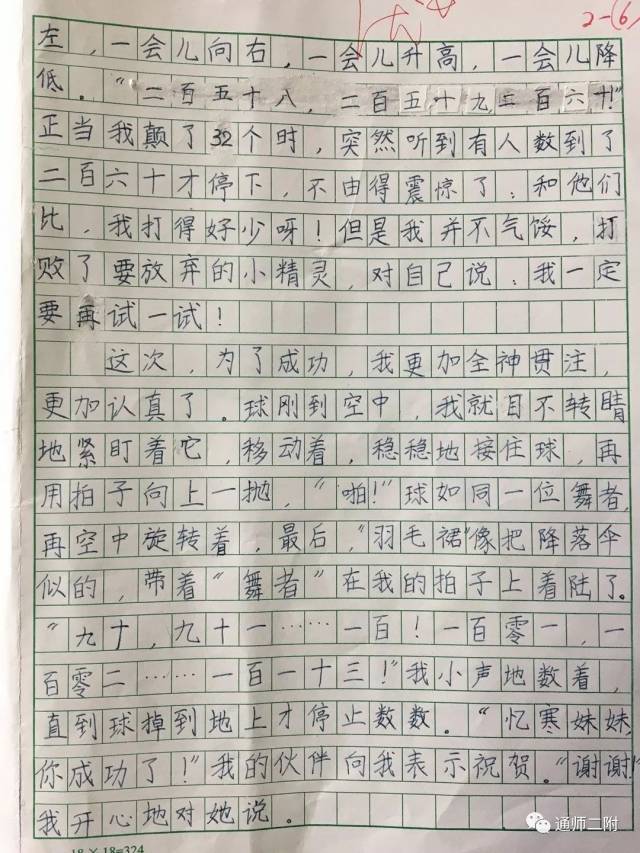 2-(6)
左，一会儿向右，一会儿升高，一会儿降
低。“二百五十八，二百五十九，二百六十！”
正当我颠了32个时，突然听到有人数到了
二百六十才停下，不由得震惊了：和他们
比，我打得好少呀！但是我并不气馁，打
败了要放弃的小精灵，对自己说：我一定
要再试一试！
这次，为了成功，我更加全神贯注，
更加认真了。球刚到空中，我就目不转睛
地紧盯着它，移动着，稳稳地接住球，再
用拍子向上一抛，“啪！”球如同一位舞者，
再空中旋转着，最后，“羽毛裙”像把降落伞
似的，带着“舞者”在我的拍子上着陆了。
“九十，九十一……一百！一百零一，一
百零二……一百一十三！”我小声地数着，
直到球掉到地上才停止数数。“忆寒妹妹
你成功了！”我的伙伴向我表示祝贺。“谢谢！”
我开心地对她说。
18×18=324
通师二附